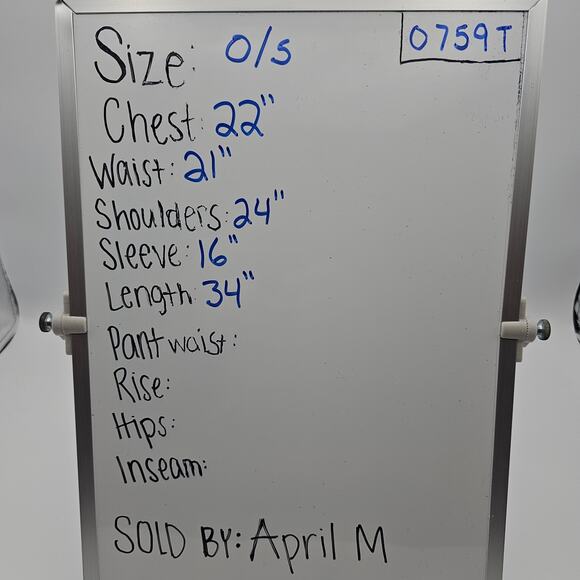 Size: O/S
0759T
Chest: 22"
Waist: 21"
Shoulders: 24"
Sleeve: 16"
Length: 34"
Pant waist:
Rise:
Hips:
Inseam:
SOLD BY: April M